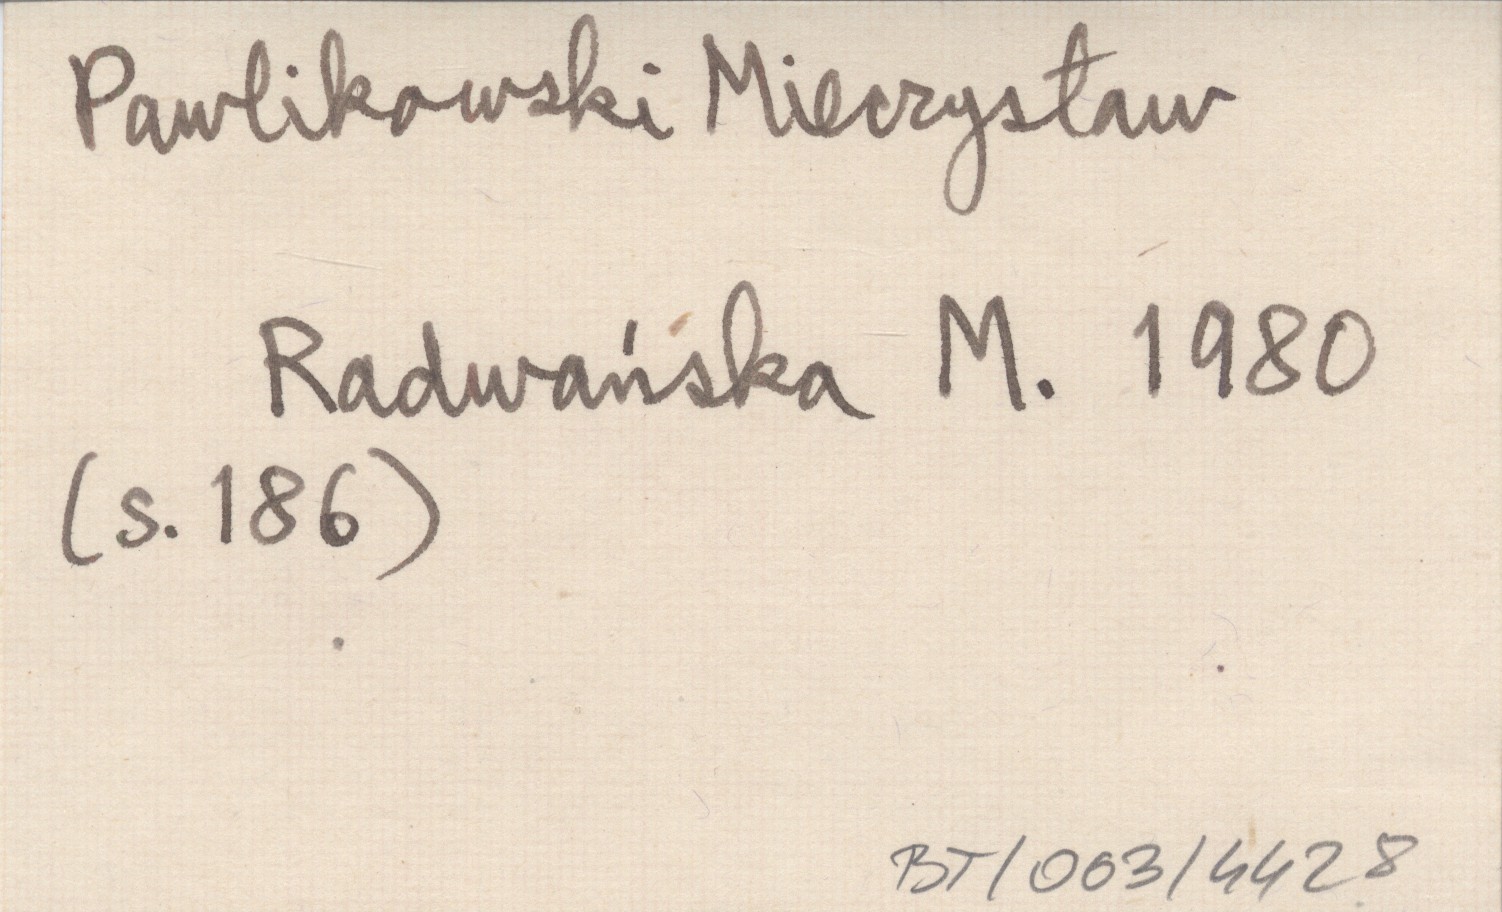 Pawlikowski Mieczysław
Radwańska M. 1980
(s. 186)
BT/063/4428